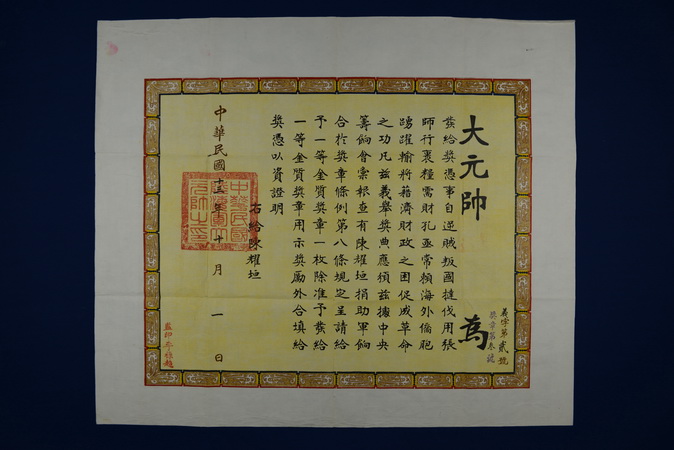 大元帥 為
茲給獎憑事自逆賊叛國撻伐用張
師行裹糧需財孔亟常賴海外僑胞
踴躍輸將藉濟財政之困促成革命
之功凡茲義舉獎典應頒茲據中央
籌餉會彙報查有陳耀垣捐助軍餉
合於獎章條例第八條規定呈請給
予一等金質獎章一枚除准予發給
一等金質獎章用示獎勵外合填給
獎憑以資證明
右給陳耀垣
中華民國十三年十月一日
義字第貳號
獎章第叁號
監印